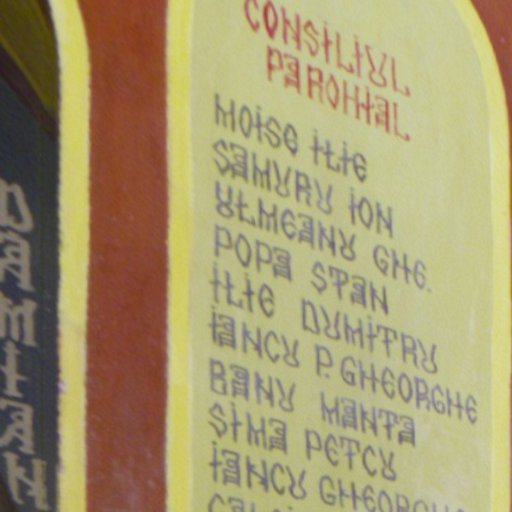 CONSILIUL
PAROHIAL
MOISE ILIE
SAMURU ION
ULMEANU GHE.
POPA STAN
ILIE DUMITRU
IANCU P. GHEORGHE
BANU MANTA
SIMA PETCU
IANCU
DAMIAN